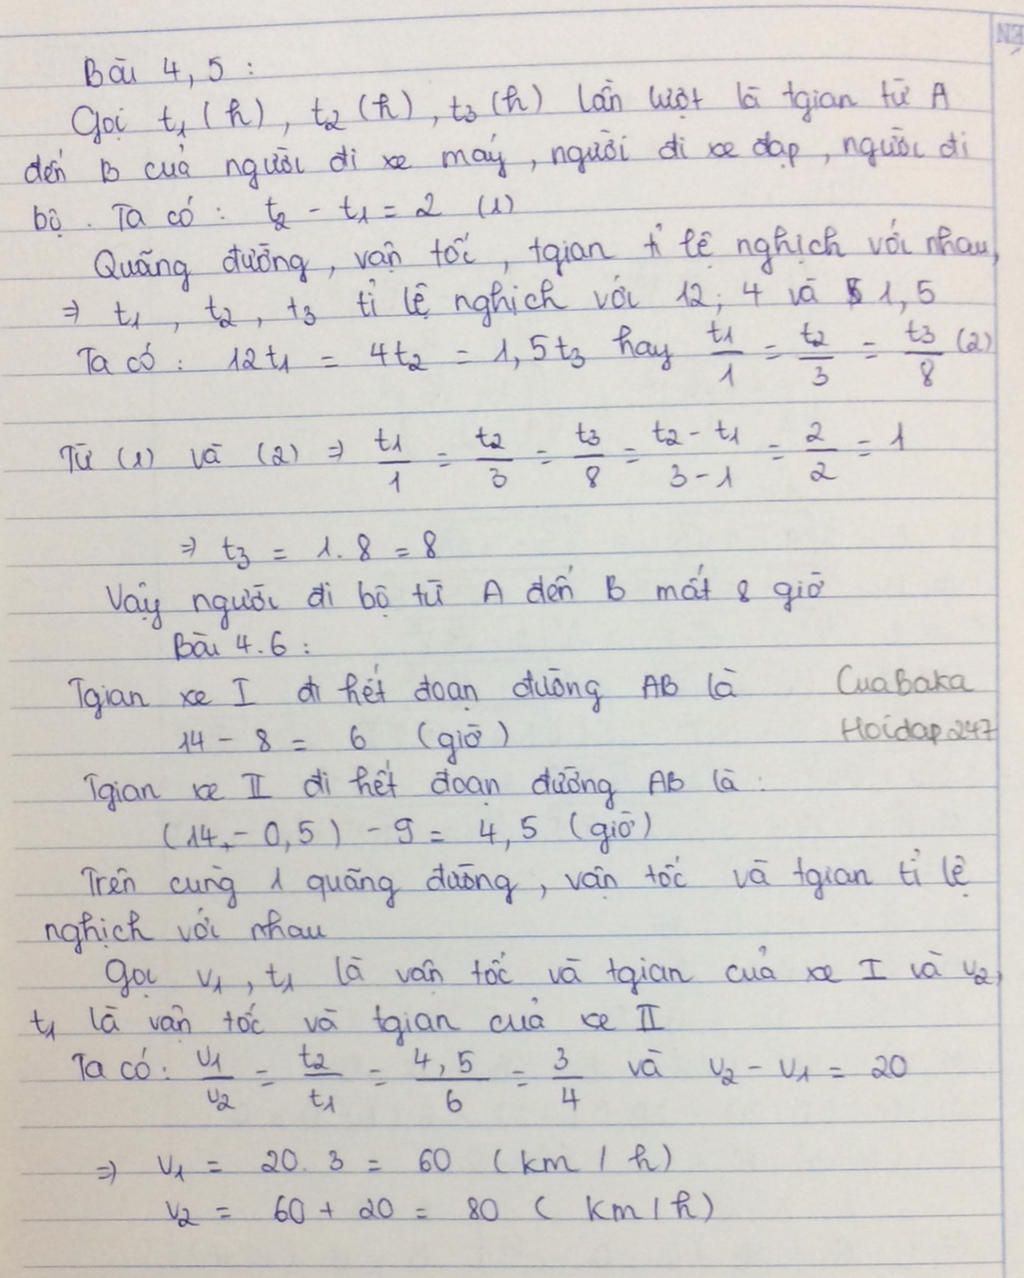 Bài 4,5 :
Gọi t₁ (h), t₂ (h), t₃ (h) lần lượt là tgian từ A
đến B của người đi xe máy, người đi xe đạp, người đi
bộ. Ta có : t₂ - t₁ = 2 (1)
Quãng đường, vận tốc, tgian tỉ lệ nghịch với nhau,
⇒ t₁, t₂, t₃ tỉ lệ nghịch với 12; 4 và 1,5
Ta có : 12t₁ = 4t₂ = 1,5t₃ hay t₁/1 = t₂/3 = t₃/8 (2)
Từ (1) và (2) ⇒ t₁/1 = t₂/3 = t₃/8 = t₂ - t₁/3 - 1 = 2/2 = 1
⇒ t₃ = 1. 8 = 8
Vậy người đi bộ từ A đến B mất 8 giờ
Bài 4.6 :
Tgian xe I đi hết đoạn đường AB là
CuaBaka
14 - 8 = 6 (giờ)
Hoidap247
Tgian xe II đi hết đoạn đường AB là :
(14 - 0,5) - 9 = 4,5 (giờ)
Trên cùng 1 quãng đường, vận tốc và tgian tỉ lệ
nghịch với nhau
Gọi v₁, t₁ là vận tốc và tgian của xe I và v₂,
t₁ là vận tốc và tgian của xe II
Ta có : v₁/v₂ = t₂/t₁ = 4,5/6 = 3/4 và v₂ - v₁ = 20
⇒ v₁ = 20. 3 = 60 (km / h)
v₂ = 60 + 20 = 80 ( km / h)